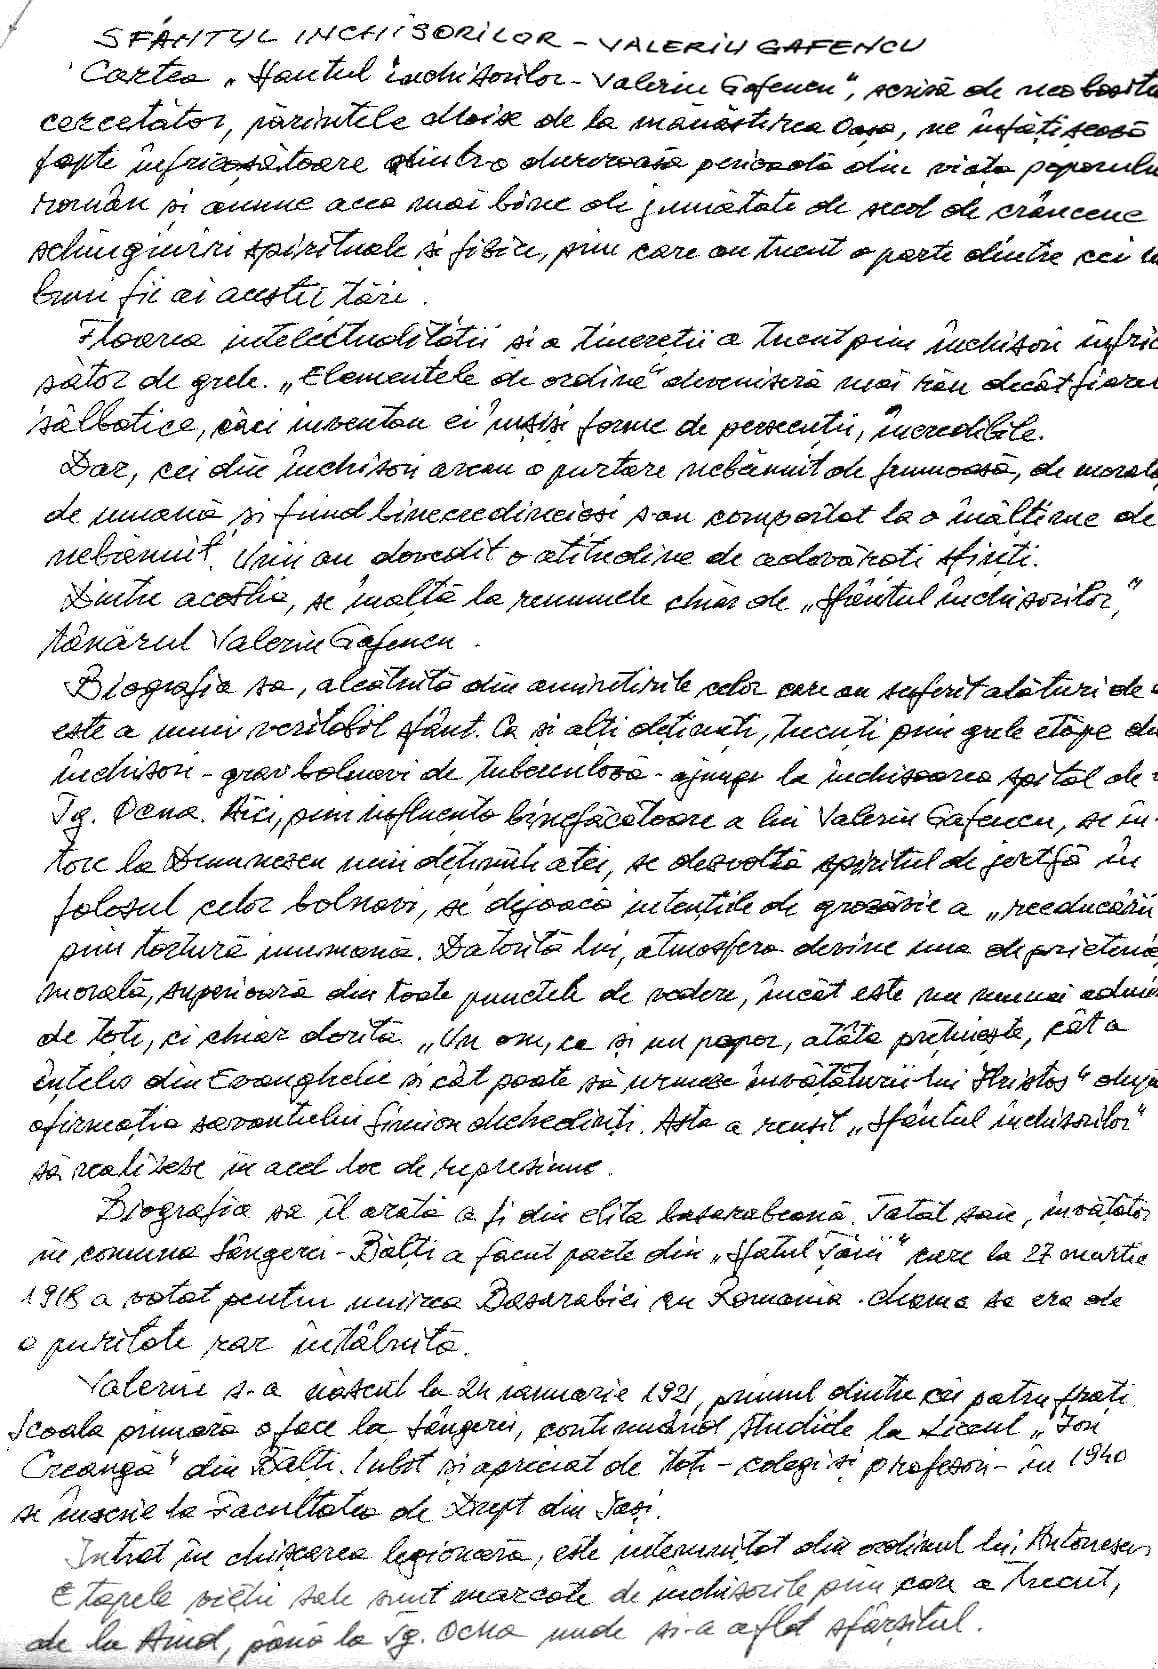 SFÂNTUL INCHISORILOR - VALERIU GAFENCU
Cartea „Sfantul închisorilor - Valeriu Gafencu", scrisă de neobositu
cercetător, părintele Moise de la mănăstirea Oasa, ne înfățișează
fapte înfricoșătoare dintr-o dureroasă perioadă din viața poporulu
român și anume acea mai bine de jumătate de secol de crâncene
schingiuiri spirituale și fizice, prin care au trecut o parte dintre cei m
buni fii ai acestei țări.
Floarea intelectualității și a tinereții a trecut prin închisori înfric
șător de grele. „Elementele de ordine" deveniseră mai răi decât fiarel
sălbatice, căci inventau ei înșiși forme de persecuții, incredibile.
Dar, cei din închisori aveau o purtare nebănuit de frumoasă, de morală,
de umană și fiind binecredincioși s-au comportat la o înălțime de
nebănuit. Unii au dovedit o atitudine de adevărați sfinți.
Dintre aceștia, se înalță la renumele chiar de „Sfântul închisorilor",
tânărul Valeriu Gafencu.
Biografia sa, alcătuită din amintirile celor care au suferit alături de
este a unui veritabil sfânt. Ca și alți deținuți, trecuți prin grele etape de
închisori - grav bolnavi de tuberculoză - ajunge la închisoarea spital de
Tg. Ocna. Aici, prin influența binefăcătoare a lui Valeriu Gafencu, se în-
torc la Dumnezeu unii deținuți atei, se dezvoltă spiritul de jertfă în
folosul celor bolnavi, se dejoacă intențiile de grozăvie a „reeducării
prin tortură inumană. Datorită lui, atmosfera devine una de prietenie
morală, superioară din toate punctele de vedere, încât este nu numai admir
de toți, ci chiar dorită. „Un om, ca și un popor, atâta prețuiește, cât a
înțeles din Evanghelie și cât poate să urmeze învățăturii lui Hristos" după
afirmația savantului Simion Mehedinți. Asta a reușit „Sfântul închisorilor"
să realizeze în acel loc de represiune.
Biografia sa îl arată a fi din elita basarabeană. Tatăl său, învățător
în comuna Sângerei - Bălți a făcut parte din „Sfatul Țării" care la 27 martie
1918 a votat pentru unirea Basarabiei cu România. Mama sa era de
o puritate rar întâlnită.
Valeriu s-a născut la 24 ianuarie 1921, primul dintre cei patru frați.
Școala primară o face la Sângerei, continuând studiile la Liceul „Ion
Creangă" din Bălți. Iubit și apreciat de toți - colegi și profesori - în 1940
se înscrie la Facultatea de Drept din Iași.
Intrat în mișcarea legionară, este întemnițat din ordinul lui Antonescu
Etapele vieții sale sunt marcate de închisorile prin care a trecut,
de la Aiud, până la Tg. Ocna unde și-a aflat sfârșitul.